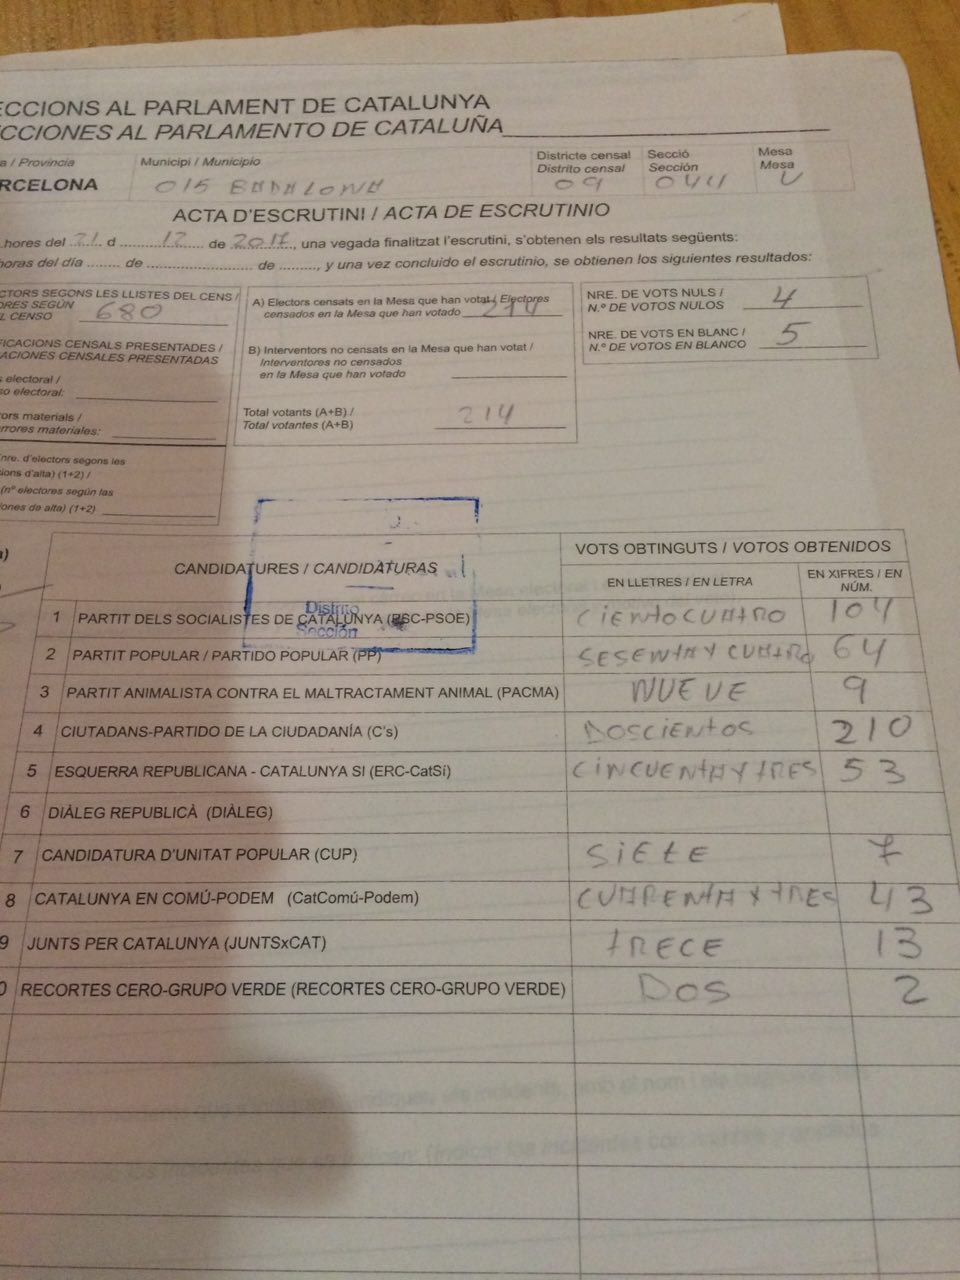 ECCIONS AL PARLAMENT DE CATALUNYA
CCIONES AL PARLAMENTO DE CATALUÑA
a / Provincia Municipi / Municipio Districte censal Secció Mesa
Distrito censal Sección Mesa
RCELONA 015 BADALONA 09 044 U
ACTA D'ESCRUTINI / ACTA DE ESCRUTINIO
hores del 21 d 12 de 2017, una vegada finalitzat l'escrutini, s'obtenen els resultats següents:
horas del día ........ de ........................ de ........, y una vez concluido el escrutinio, se obtienen los siguientes resultados:
CTORS SEGONS LES LLISTES DEL CENS /
ORES SEGÚN
L CENSO 680
FICACIONS CENSALS PRESENTADES /
ACIONES CENSALES PRESENTADAS
s electoral /
so electoral:
rors materials /
rrores materiales:
nre. d'electors segons les
ions d'alta) (1+2) /
(nº electores según las
iones de alta) (1+2)
A) Electors censats en la Mesa que han votat / Electores
censados en la Mesa que han votado
B) Interventors no censats en la Mesa que han votat /
Interventores no censados
en la Mesa que han votado
Total votants (A+B) /
Total votantes (A+B) 214
NRE. DE VOTS NULS /
N.º DE VOTOS NULOS 4
NRE. DE VOTS EN BLANC /
N.º DE VOTOS EN BLANCO 5
Distrito
Sección
CANDIDATURES / CANDIDATURAS VOTS OBTINGUTS / VOTOS OBTENIDOS
EN LLETRES / EN LETRA EN XIFRES / EN
NÚM.
1 PARTIT DELS SOCIALISTES DE CATALUNYA (PSC-PSOE) CIENTOCUATRO 104
2 PARTIT POPULAR / PARTIDO POPULAR (PP) SESENTA Y CUATRO 64
3 PARTIT ANIMALISTA CONTRA EL MALTRACTAMENT ANIMAL (PACMA) NUEVE 9
4 CIUTADANS-PARTIDO DE LA CIUDADANÍA (C's) DOSCIENTOS 210
5 ESQUERRA REPUBLICANA - CATALUNYA SI (ERC-CatSí) CINCUENTA Y TRES 53
6 DIÀLEG REPUBLICÀ (DIÀLEG)
7 CANDIDATURA D'UNITAT POPULAR (CUP) SIETE 7
8 CATALUNYA EN COMÚ-PODEM (CatComú-Podem) CUARENTA Y TRES 43
9 JUNTS PER CATALUNYA (JUNTSxCAT) TRECE 13
0 RECORTES CERO-GRUPO VERDE (RECORTES CERO-GRUPO VERDE) DOS 2